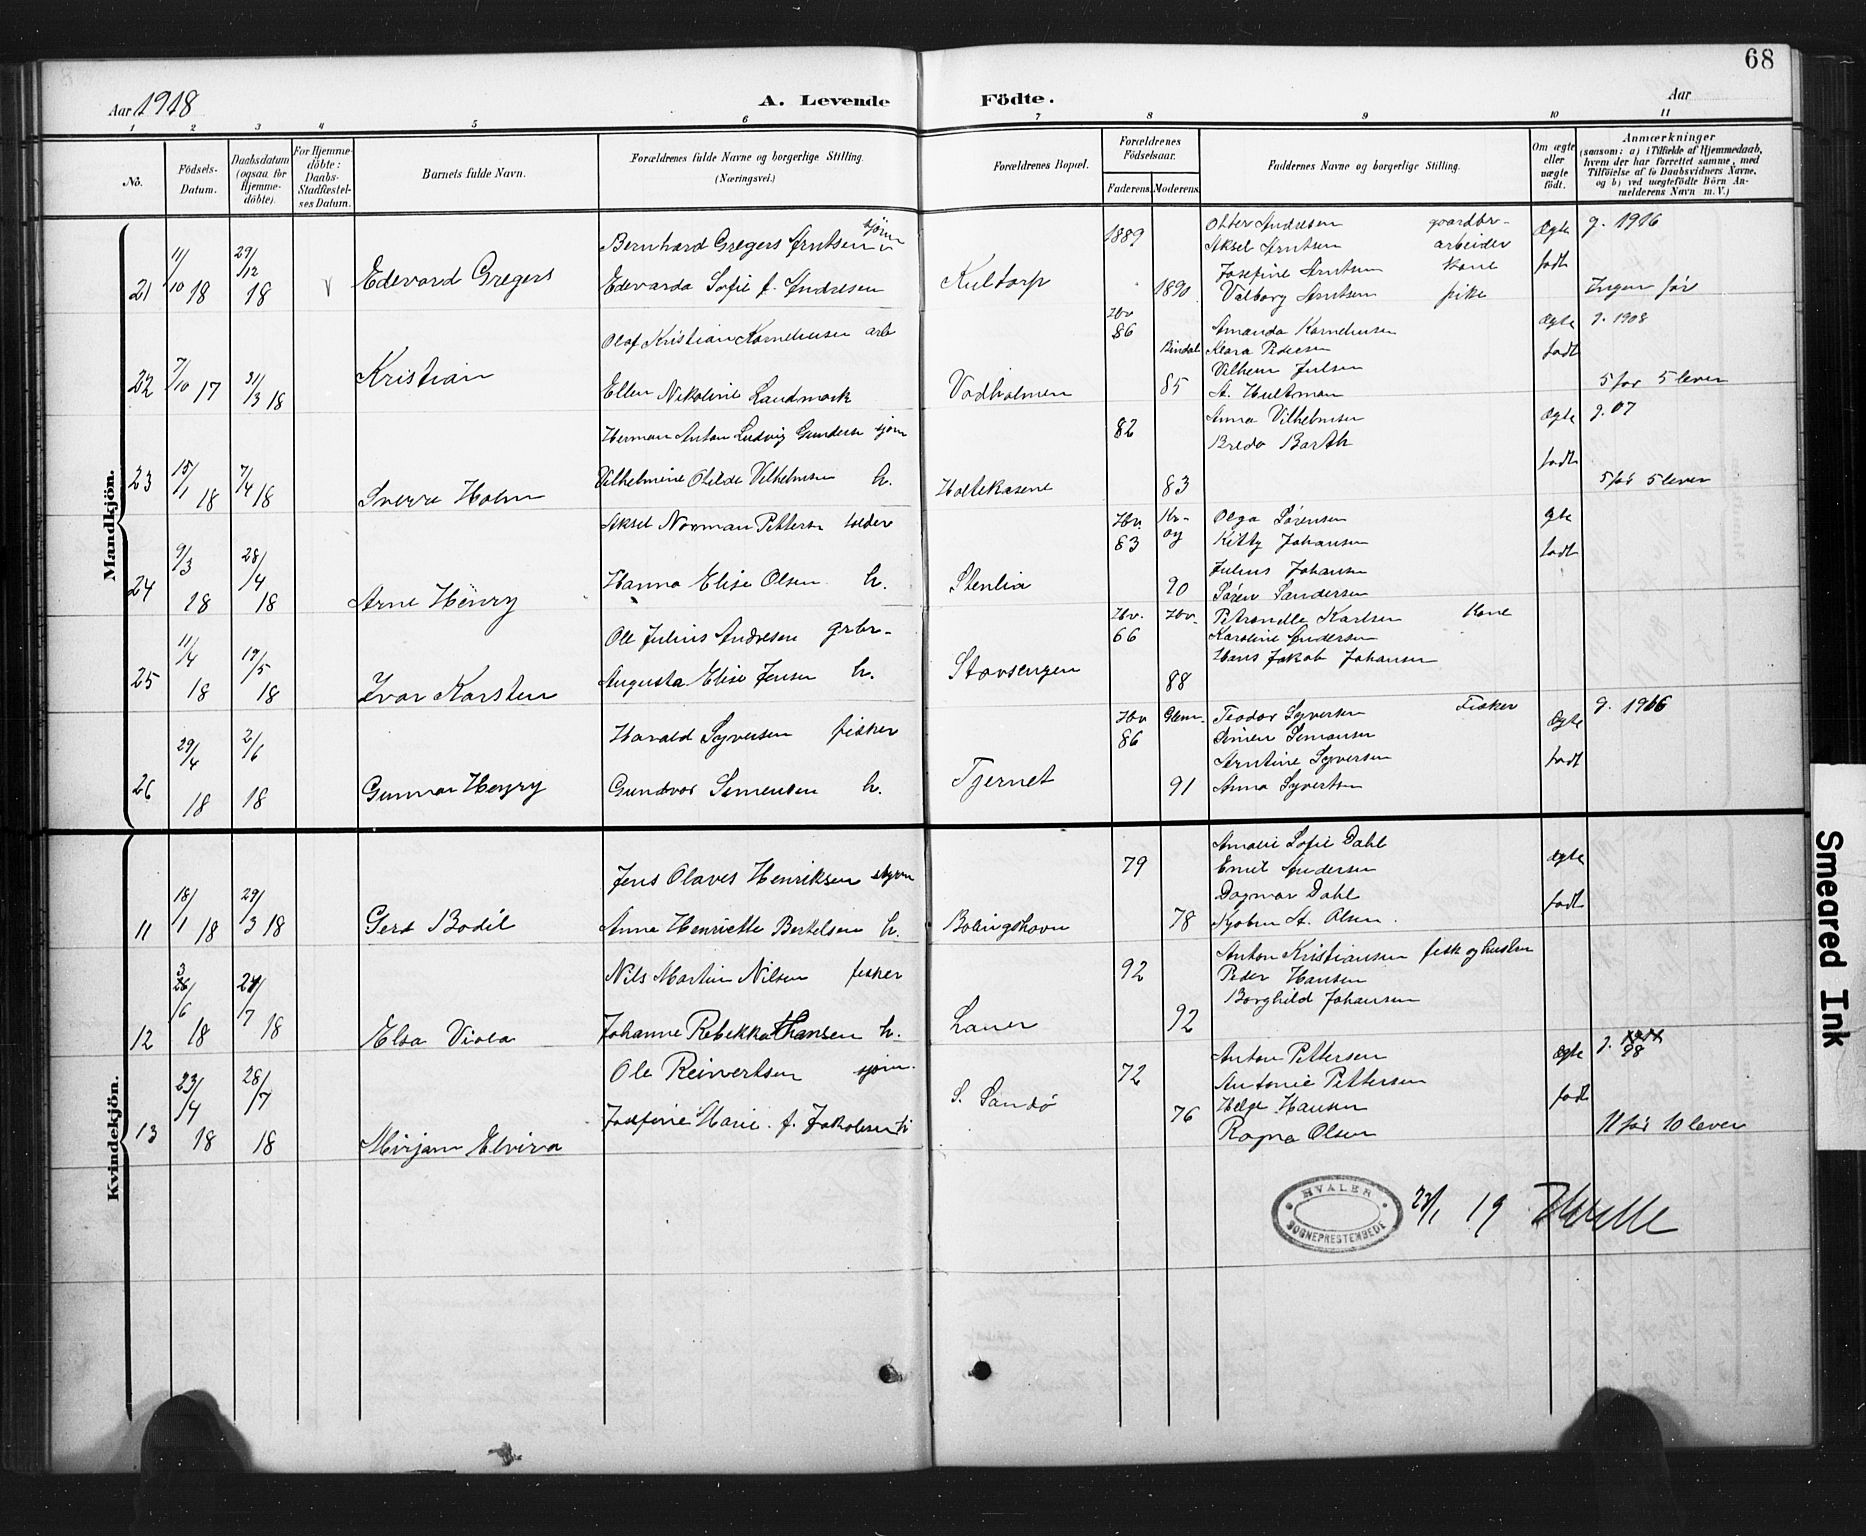 68
Aar 1918
A. Levende Födte.
Aar
1 2 3 4 5 6 7 8 9 10 11
No.
Födsels-Datum.
Daabsdatum (ogsaa for Hjemme-döbte).
For Hjemme-döbte: Daabs-Stadfæstel-ses Datum.
Barnets fulde Navn.
Forældrenes fulde Navne og borgerlige Stilling.
(Næringsvei.)
Forældrenes Bopæl.
Forældrenes Födselsaar.
Faderens. Moderens.
Faddernes Navne og borgerlige Stilling.
Om ægte eller uægte födt.
Anmærkninger
(saasom: a) i Tilfælde af Hjemmedaab,
hvem der har forrettet samme, med
Tilföielse af to Daabsvidners Navne,
og b) ved uægtefödte Börn An-
melderens Navn m. V.)
Mandkjön.
21 11/10 18 29/12 18 Edevard Gregers
Bernhard Gregers Arntsen sjöm
Edevarda Sofie f. Andresen
Kultorp 1889 1890
Otter Andresen gaardbr-
Aksel Arntsen arbeider
Josefine Arntsen Kone
Valborg Arntsen pike
Ægte födt
g. 1916
Ingen før
22 7/10 17 31/3 18 Kristian
Olaf Kristian Korneliusen arb
Ellen Nikoline Landmark
Vadholmen Hv 86 Bindal 85
Amanda Korneliusen
Klara Pedersen
Vilhem Julsen
A. Hultman
Ægte födt
g. 1908
5 før 5 lever
23 15/1 18 7/4 18 Sverre Holm
Herman Anton Ludvig Gunders sjöm
Vilhelmine Otilde Vilhelmsen h.
Holtekasene 82 83
Anna Vilhelmsen
Breda Barth
Ægte födt
g. 07
5 før 5 lever
24 9/3 18 28/4 18 Arne Henry
Aksel Norman Petters tolder
Hanna Elise Olsen h.
Stenlia Hv. 83 90
Olga Sørensen
Kitty Johansen
Julius Johansen
Søren Sandersen
gte födt
25 11/4 18 19/5 18 Ivar Karsten
Ole Julius Andresen grbr-
Augusta Elise Jensen h.
Stavsengen Hv. 66 Hv. 88
Petronelle Karlsen Kone
Karoline Andersen
Hans Jakob Johansen
26 29/4 18 2/6 18 Gunnar Henry
Harald Syversen fisker
Gundvor Simensen h.
Tjernet Hv 86 Glem. 91
Teodor Syversen Fisker
Simen Simansen
Arntine Syversen
Anna Syvertsen
Ægte födt
g. 1916
Kvindekjön.
11 18/1 18 29/3 18 Gerd Bodil
Jens Olaves Henriksen styrm
Anna Henriette Bertelsen h.
Bølingshavn 79 78
Amalie Sofie Dahl
Emil Andersen
Dagmar Dahl
Kjøbm A. Olsen.
ægte födt
12 /6 18 /7 18 Elsa Viola
Nils Martin Nilsen fisker
Johanne Rebekka Hansen h.
Lauer 92 92
Anton Kristiansen fisk og hustru
Peder Hansen
Borghild Johansen
13 23/4 18 28/7 18 Mirjam Elvira
Ole Reinertsen sjöm.
Josefine Marie f. Jakobsen
S. Sandö 72 76
Anton Pettersen
Antonie Pettersen
Helge Hansen
Ragna Olsen
Ægte födt
g. 98
11 før 10 lever
HVALER
SOGNEPRESTEMBEDE
/1 19
Smeared Ink